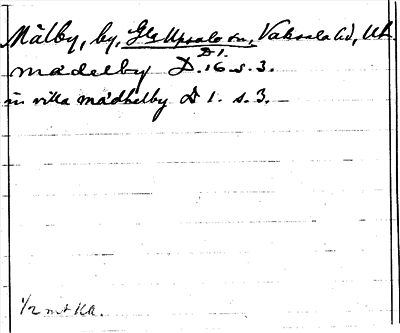 Målby, by, Gla Upsala sn, Vaksala hd, Upl.
D. 1.
mädelby D. 16 s. 3.
in villa mädhelby D 1. s. 3. —
1/2 mt KA.